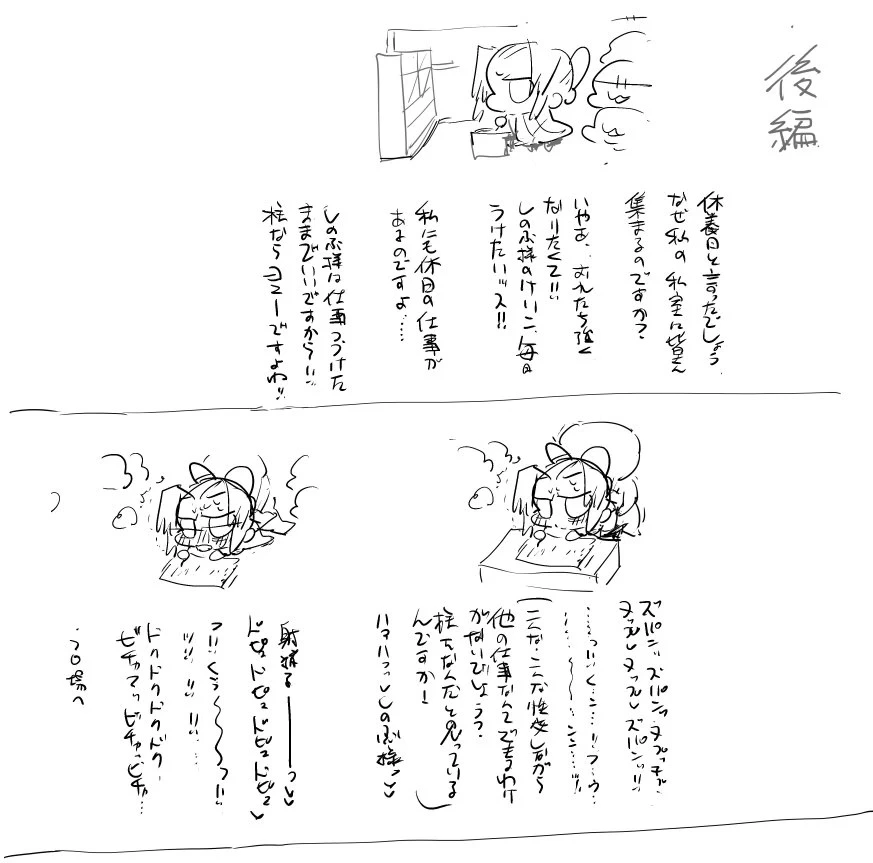 後編
休養日と言ったでしょう、
なぜ私の私室に皆さん
集まるのですか?
いやあ、おれたち強く
なりたくて!!
しのぶ様のけいこ、毎日
うけたいッス!!
私にも休日の仕事が
あるのですよ……
しのぶ様は仕事つづけた
ままでいいですから!!
柱ならヨユーですよね!!
ズパンッズパンッヌプッチュッ
ヌプルヌプルズパンッ!!
(こんな…こんな性交しながら
他の仕事なんてできるわけ
がないでしょう?
柱をなんだと思っている
んですか!)
ハァハァっしのぶ様っ♡♡
射精る――――っ♡♡
ドピュドピュドピュドピュ♡
ドクドクドクドク…
ビチャァッビチャッビチャ…
フロ場へ